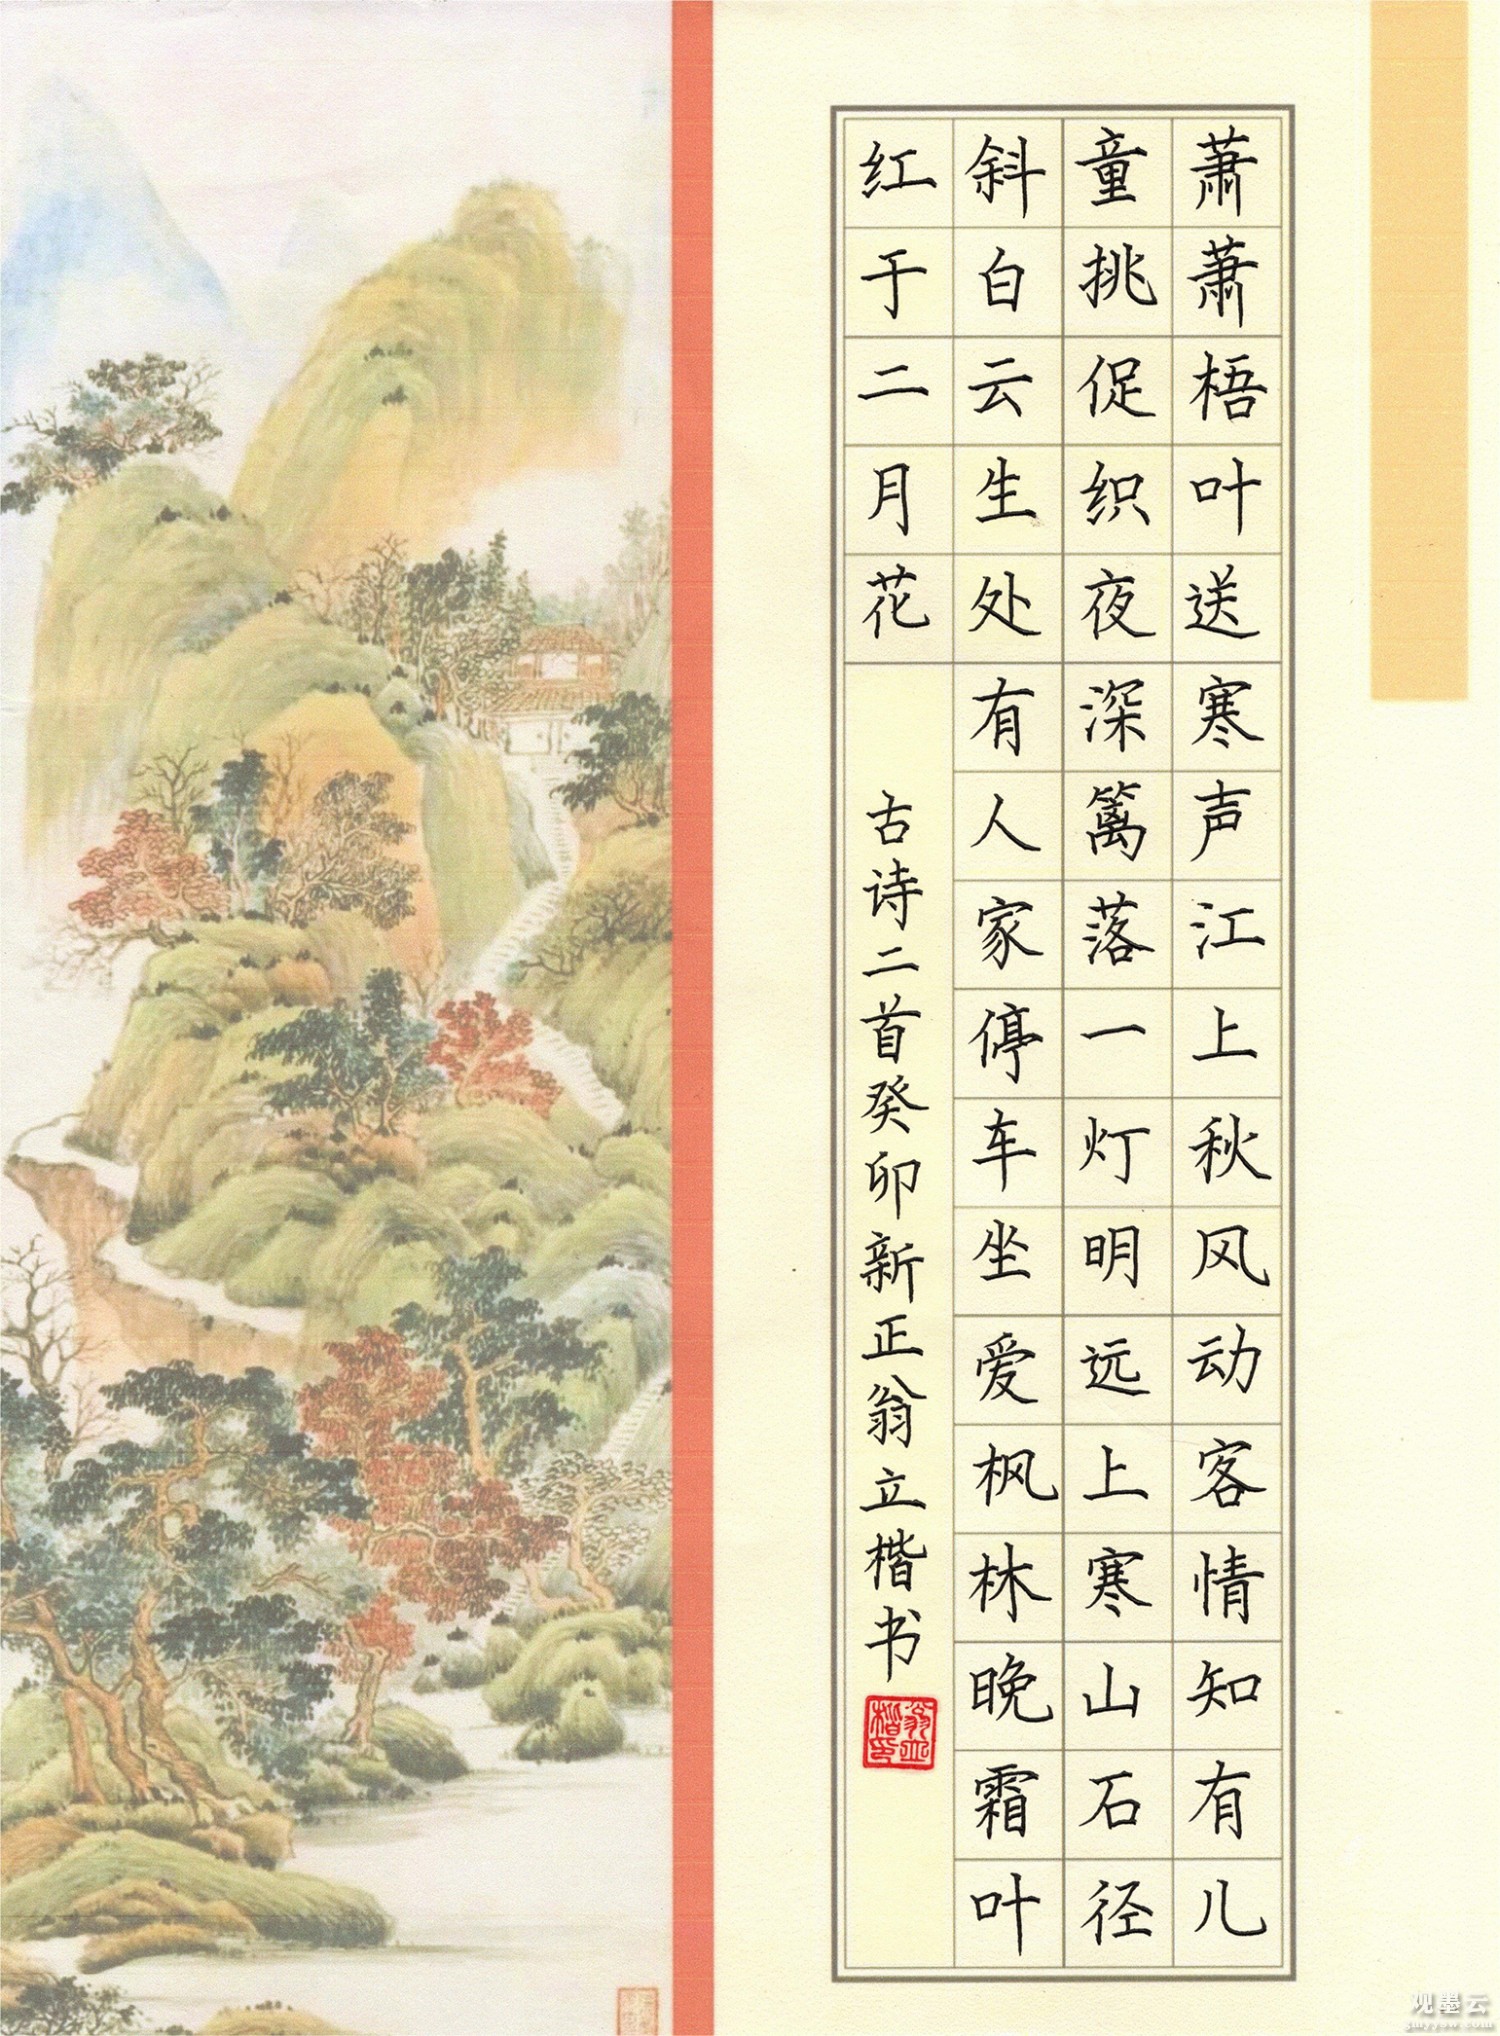 萧萧梧叶送寒声江上秋风动客情知有儿
童挑促织夜深篱落一灯明远上寒山石径
斜白云生处有人家停车坐爱枫林晚霜叶
红于二月花
古诗二首癸卯新正翁立楷书
观墨云